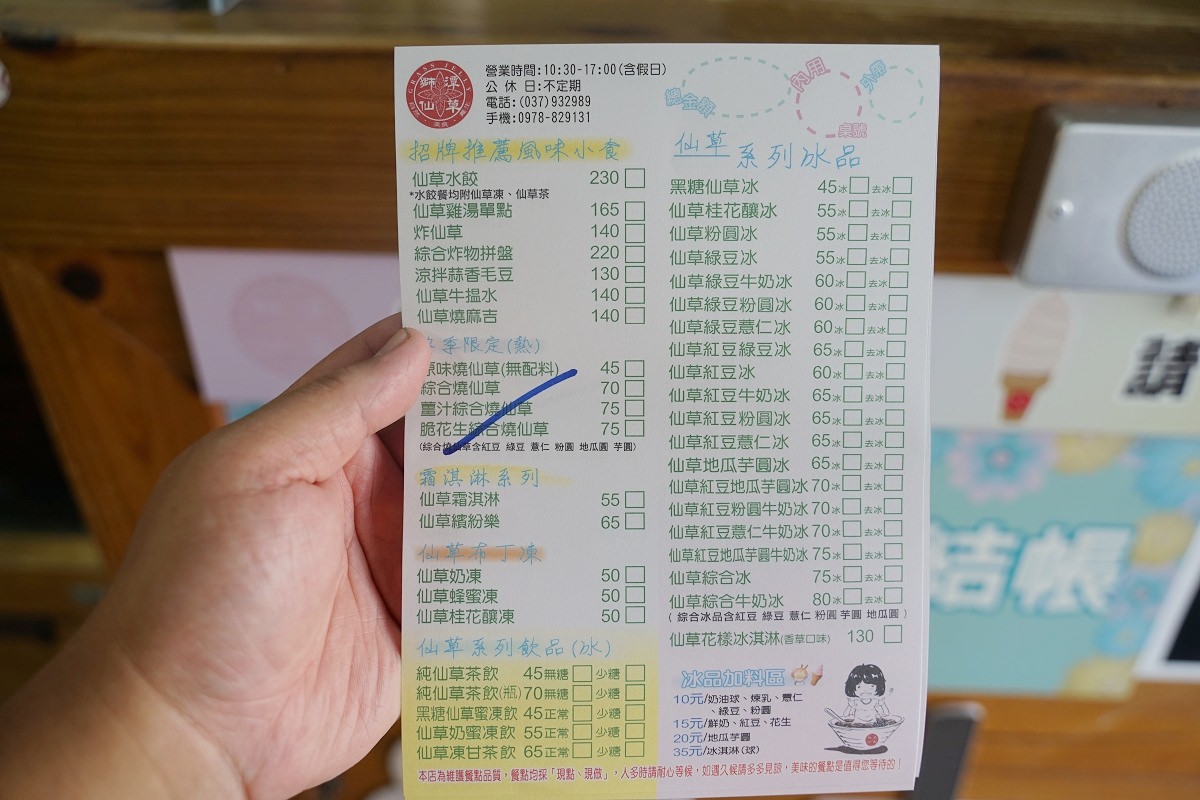 GRASS JELLY
獅潭
仙草
營業時間:10:30-17:00(含假日)
公 休 日:不定期
電話:(037)932989
手機:0978-829131
總金額
內用
桌號
外帶
招牌推薦風味小食
仙草水餃 230
*水餃餐均附仙草凍、仙草茶
仙草雞湯單點 165
炸仙草 140
綜合炸物拼盤 220
涼拌蒜香毛豆 130
仙草牛搵水 140
仙草燒麻吉 140
季限定(熱)
原味燒仙草(無配料) 45
綜合燒仙草 70
薑汁綜合燒仙草 75
脆花生綜合燒仙草 75
(綜合燒仙草含紅豆 綠豆 薏仁 粉圓 地瓜圓 芋圓)
霜淇淋系列
仙草霜淇淋 55
仙草繽紛樂 65
仙草布丁凍
仙草奶凍 50
仙草蜂蜜凍 50
仙草桂花釀凍 50
仙草系列飲品(冰)
純仙草茶飲 45無糖 少糖
純仙草茶飲(瓶)70無糖 少糖
黑糖仙草蜜凍飲 45正常 少糖
仙草奶蜜凍飲 55正常 少糖
仙草凍甘茶飲 65正常 少糖
仙草系列冰品
黑糖仙草冰 45冰 去冰
仙草桂花釀冰 55冰 去冰
仙草粉圓冰 55冰 去冰
仙草綠豆冰 55冰 去冰
仙草綠豆牛奶冰 60冰 去冰
仙草綠豆粉圓冰 60冰 去冰
仙草綠豆薏仁冰 60冰 去冰
仙草紅豆綠豆冰 65冰 去冰
仙草紅豆冰 60冰 去冰
仙草紅豆牛奶冰 65冰 去冰
仙草紅豆粉圓冰 65冰 去冰
仙草紅豆薏仁冰 65冰 去冰
仙草地瓜芋圓冰 65冰 去冰
仙草紅豆地瓜芋圓冰 70冰 去冰
仙草紅豆粉圓牛奶冰 70冰 去冰
仙草紅豆薏仁牛奶冰 70冰 去冰
仙草紅豆地瓜芋圓牛奶冰 75冰 去冰
仙草綜合冰 75冰 去冰
仙草綜合牛奶冰 80冰 去冰
( 綜合冰品含紅豆 綠豆 薏仁 粉圓 芋圓 地瓜圓 )
仙草花樣冰淇淋(香草口味) 130
冰品加料區
10元/奶油球、煉乳、薏仁
、綠豆、粉圓
15元/鮮奶、紅豆、花生
20元/地瓜芋圓
35元/冰淇淋(球)
本店為維護餐點品質，餐點均採「現點、現做」，人多時請耐心等候，如遇久候請多多見諒，美味的餐點是值得您等待的！
請
結帳